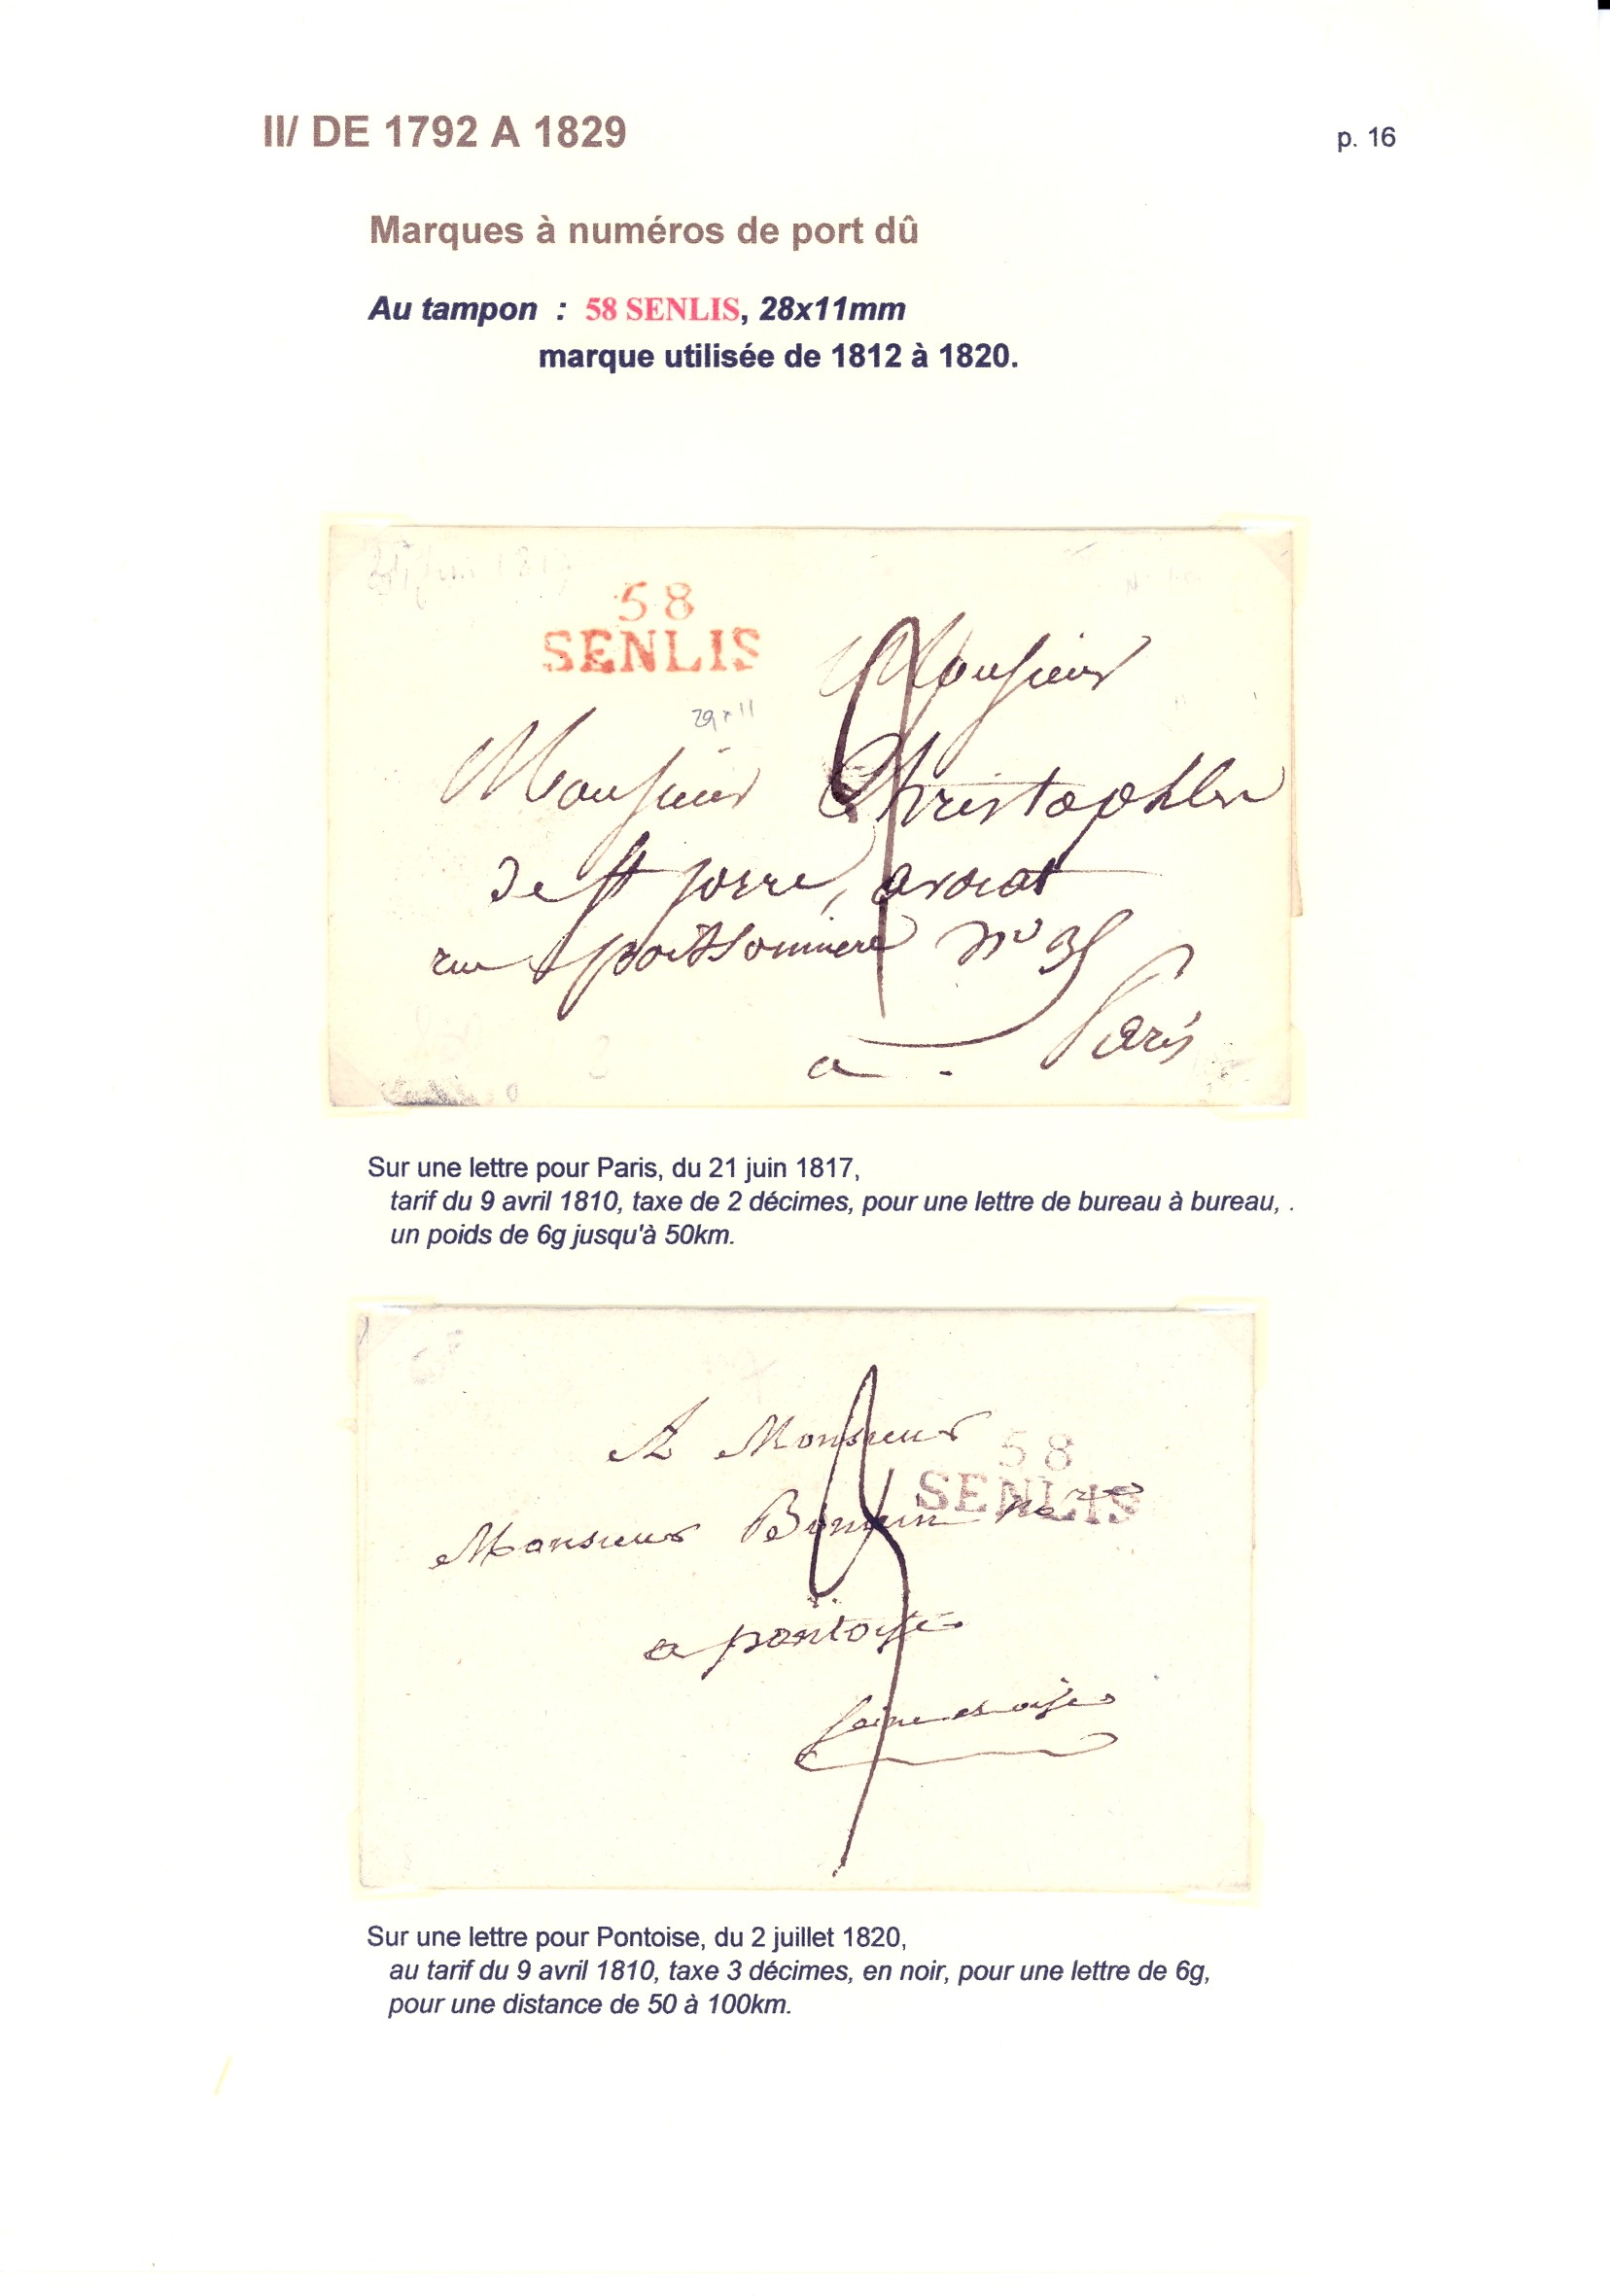 II/ DE 1792 A 1829
p. 16
Marques à numéros de port dû
Au tampon : 58 SENLIS, 28x11mm
marque utilisée de 1812 à 1820.
58
SENLIS
29x11
Monsieur
Monsieur Christophler
de st jorre, avocat
rue poissonniere N° 35
a Paris
Sur une lettre pour Paris, du 21 juin 1817,
tarif du 9 avril 1810, taxe de 2 décimes, pour une lettre de bureau à bureau, .
un poids de 6g jusqu'à 50km.
A Monsieur
58
SENLIS
Monsieur
a pontoise
seine et oise
Sur une lettre pour Pontoise, du 2 juillet 1820,
au tarif du 9 avril 1810, taxe 3 décimes, en noir, pour une lettre de 6g,
pour une distance de 50 à 100km.